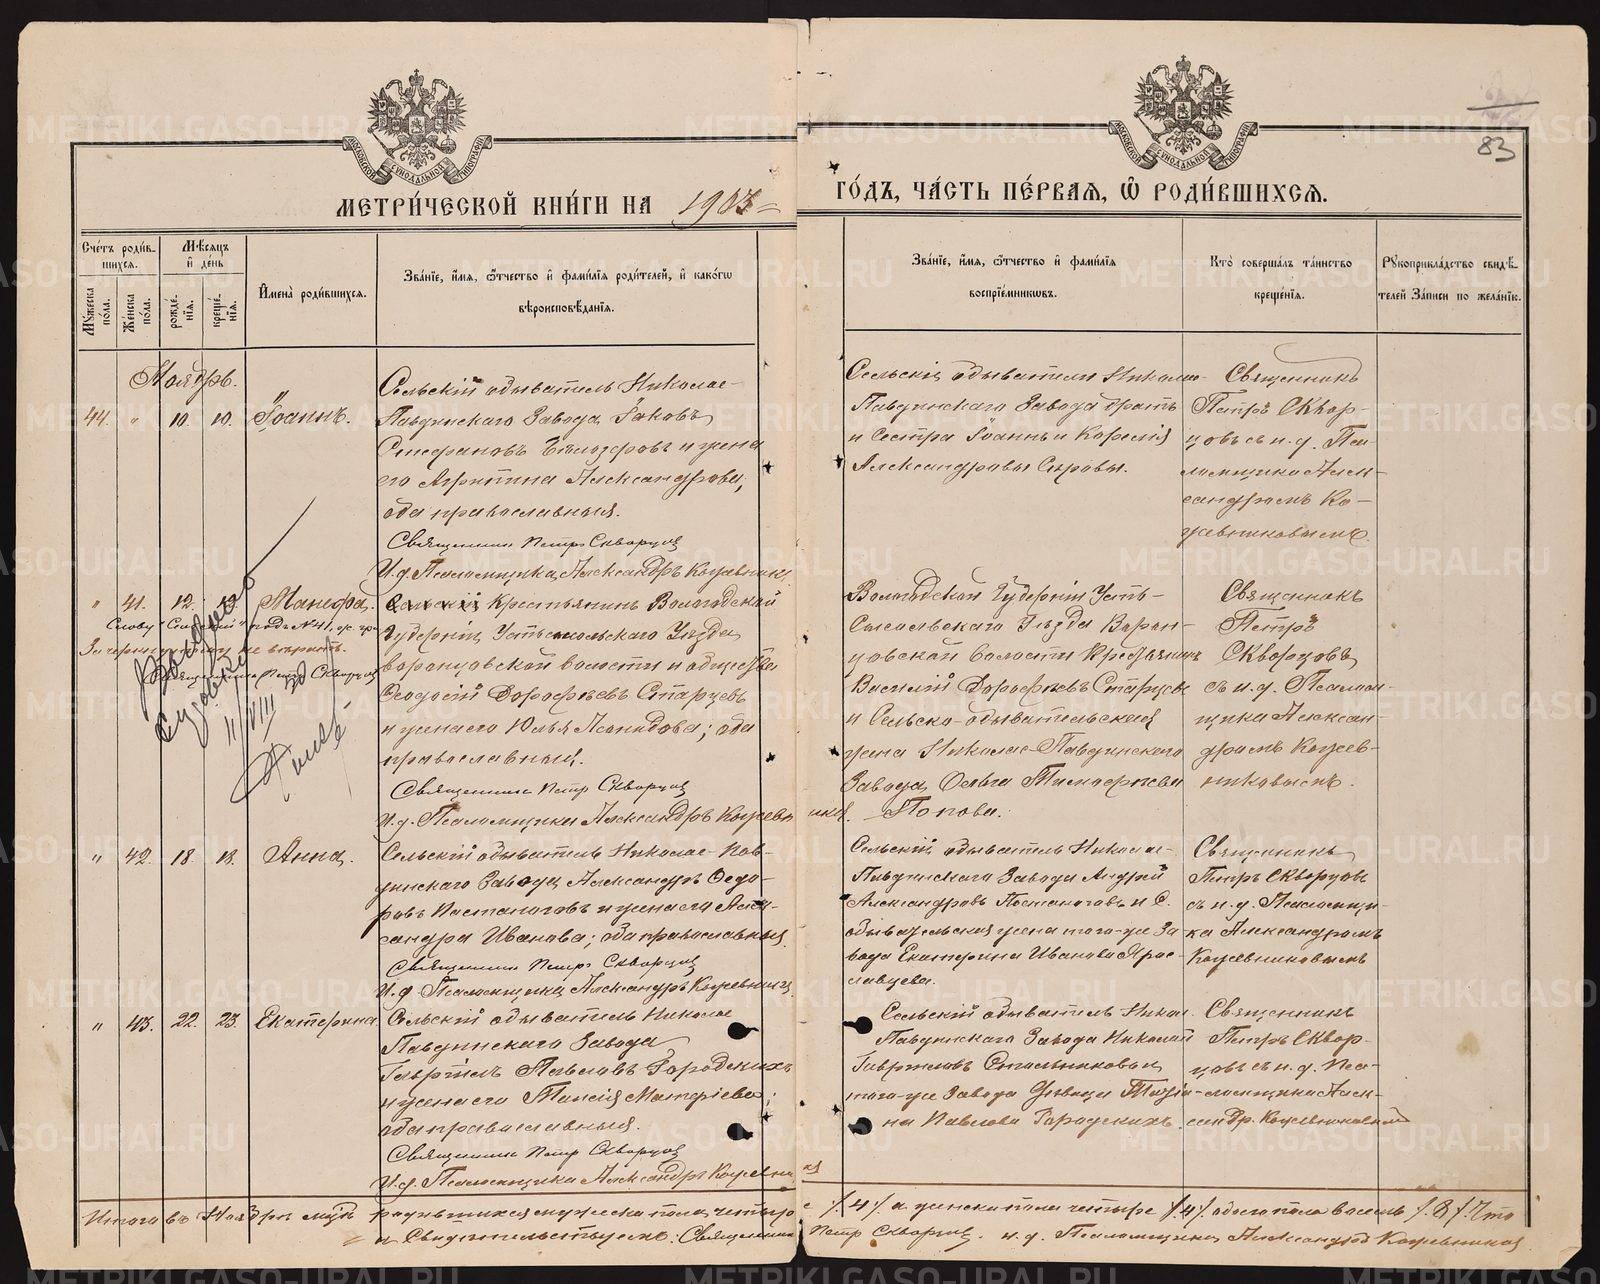 83
МЕТРИ́ЧЕСКОЙ КНИ́ГИ НА 1903
ГО́ДЪ, ЧА́СТЬ ПЕ́РВАЯ, Ѿ РОДИ́ВШИХСЯ.
МОСКОВСКОЙ СѴНОДАЛЬНОЙ ТИПОГРАФІИ
МОСКОВСКОЙ СѴНОДАЛЬНОЙ ТИПОГРАФІИ
Сче́тъ роди́в-
шихся.
Му́жеска по́ла.
Же́нска по́ла.
Мѣ́сяцъ и де́нь
рожде́-нія.
креще́-нія.
Имена̀ роди́вшихся.
Зва́ніе, и́мя, ѻ́тчество и фами́лія роди́телей, и како́гѡ
вѣроисповѣ́данія.
Зва́ніе, и́мя, ѻ́тчество и фами́лія
воспріе́мникѡвъ.
Кто̀ соверша́лъ та́инство
креще́нія.
Рꙋкоприкла́дство свидѣ́-
телей за́писи по жела́нію.
Ноябрь.
44. " 10. 10. Іоаннъ.
Сельскій обыватель Николае-
Павдинскаго Завода Іаковъ
Стефановъ и жена
его Агрипина Александрова,
оба православныя.
Священникъ Петръ Скворцовъ
И. д. Псаломщика Александръ Кожевниковъ
Сельскіе обыватели Николае-
Павдинскаго Завода братъ
и сестра Іоаннъ и
Александровы
Священникъ
Петръ Сквор-
цовъ съ и. д. Пса-
ломщика Алек-
сандромъ Ко-
жевниковымъ.
" 41. 12. Манефа.
Сельскій Крестьянинъ Вологодской
Губерніи Устьсысольскаго Уѣзда
Воронцовской волости и общества
Ѳеодосій Дороѳеевъ Старцевъ
и жена его Юлія Леонидова; оба
православныя.
Священникъ Петръ Скворцовъ
И. д. Псаломщика Александръ Кожевниковъ
Слову "Сельскій" подъ № 41, ж. гр.
Зачеркнутому не вѣрить.
Священникъ Петръ Скворцовъ
11/VIII 30
Вологодской Губерніи Усть-
Сысольскаго Уѣзда Ворон-
цовской волости Крестьянинъ
Василій Дороѳеевъ Старцевъ
и Сельско-обывательская
жена Николае-Павдинскаго
Завода Ольга Тимоѳеева
Попова.
Священникъ
Петръ
Скворцовъ
съ и. д. Псалом-
щика Алексан-
дромъ Кожев-
никовымъ.
" 42. 18. 19. Анна.
Сельскій обыватель Николае-Пав-
динскаго Завода Александръ Ѳедо-
ровъ Постаноговъ и жена его Алек-
сандра Иванова; оба православныя.
Священникъ Петръ Скворцовъ
И. д. Псаломщика Александръ Кожевниковъ
Сельскій обыватель Николае-
Павдинскаго Завода Андрей
Александровъ Постаноговъ и С.
обывательская жена того-же За-
вода Екатерина Иванова Ярос-
лавцева.
Священникъ
Петръ Скворцовъ
съ и. д. Псаломщи-
ка Александромъ
Кожевниковымъ
" 43. 22. 23. Екатерина
Сельскій обыватель Николае
Павдинскаго Завода
Гавріилъ Павловъ Городскихъ
и жена его Таисія Матѳіева;
оба православныя.
Священникъ Петръ Скворцовъ
И. д. Псаломщика Александръ Кожевниковъ
Сельскій обыватель Никол.
Павдинскаго Завода Николай
Гавриловъ Стольниковъ и
того-же Завода дѣвица
Павлова Городскихъ.
Священникъ
Петръ Сквор-
цовъ съ и. д. Пса-
ломщика Алек-
сандр. Кожевниковымъ
Итого въ Ноябрѣ мѣс. родившихся мужеска пола четыре /4/ а женска пола четыре /4/ обоего пола восемь /8/. Что
и свидѣтельствуемъ: Священникъ Петръ Скворцовъ. и. д. Псаломщика Александръ Кожевниковъ